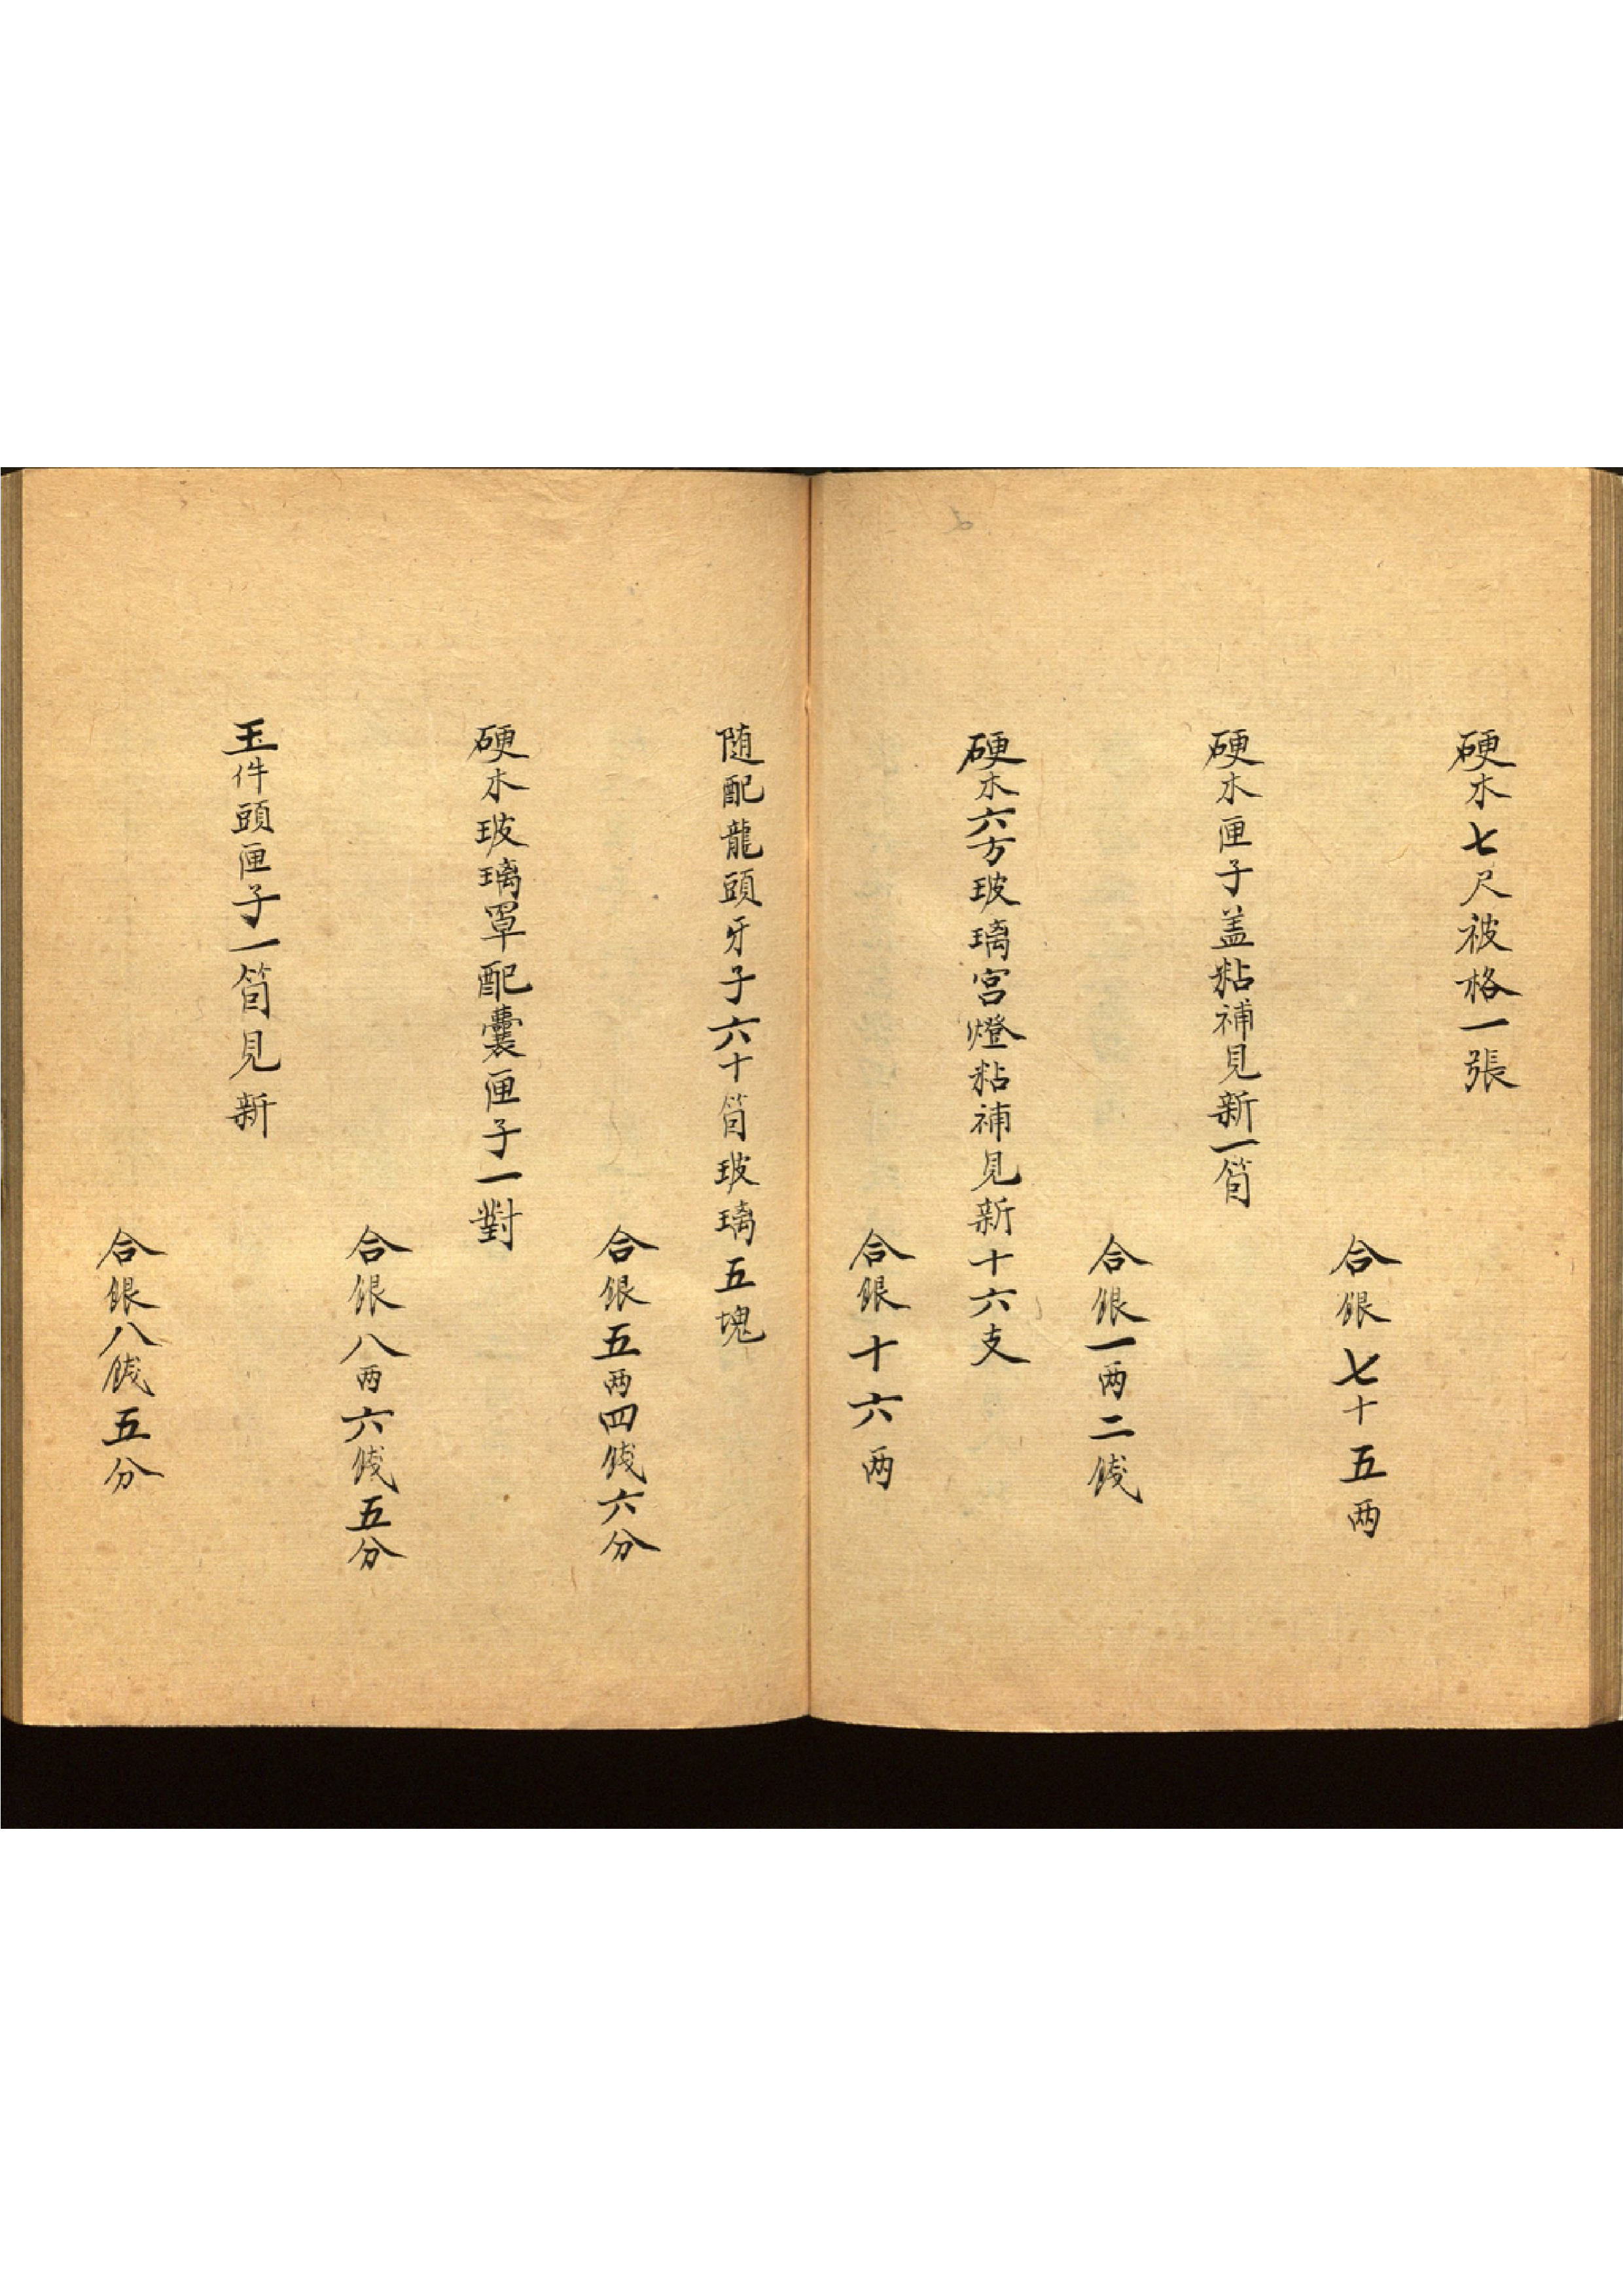 硬木七尺被格一張
合銀七十五两
硬木匣子盖粘補見新一箇
合銀一两二錢
硬木六方玻璃宫燈粘補見新十六支
合銀十六两
随配龍頭牙子六十箇玻璃五塊
合銀五两四錢六分
硬木玻璃罩配囊匣子一對
合銀八两六錢五分
玉件頭匣子一箇見新
合銀八錢五分